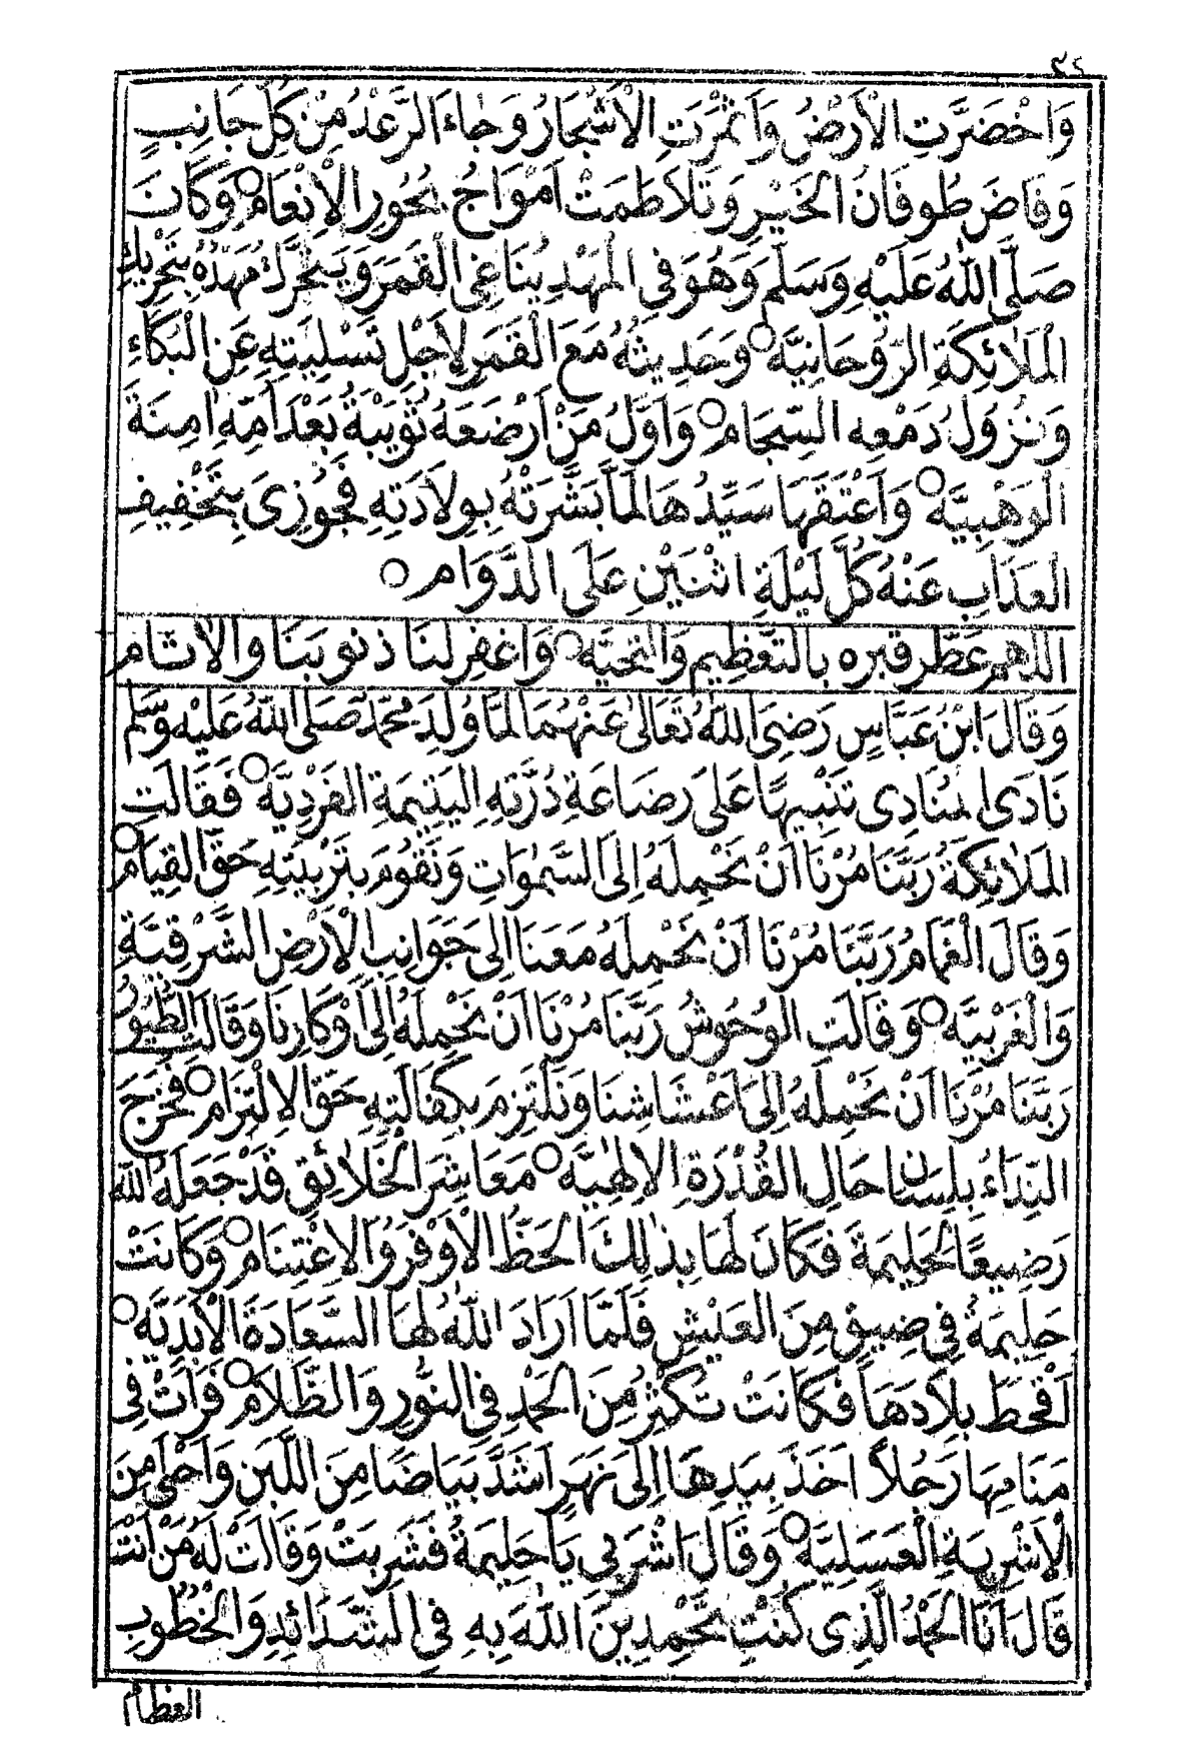 ٣٤
وَاخْضَرَّتِ الْاَرْضُ وَاَثْمَرَتِ الْاَشْجَارُ وَجَاءَ الرَّعْدُ مِنْ كُلِّ جَانِبٍ
وَفَاضَ طُوفَانُ الخَيْرِ وَتَلَاطَمَتْ اَمْوَاجُ بُحُورِ الْاِنْعَامِ ○ وَكَانَ
صَلَّى اللّٰهُ عَلَيْهِ وَسَلَّمَ وَهُوَ فِي الْمَهْدِ يُنَاغِى الْقَمَرَ وَيَتَحَرَّكُ مَهْدُهُ بِتَحْرِيكِ
الْمَلَائِكَةِ الرُّوحَانِيَّه ○ وَحَدِيثُهُ مَعَ الْقَمَرِ لِاَجْلِ تَسْلِيَتِهِ عَنِ الْبَكَاءِ
وَنُزُولِ دَمْعِهِ السِّجَامِ ○ وَاَوَّلُ مَنْ اَرْضَعَهُ ثُوَيْبَةُ بَعْدَ اُمِّهِ اٰمِنَةَ
الْوَهْبِيَّه ○ وَاَعْتَقَهَا سَيِّدُهَا لَمَّا بَشَّرَتْهُ بِوِلَادَتِهِ فَجُوزِىَ بِتَخْفِيفِ
الْعَذَابِ عَنْهُ كُلَّ لَيْلَةِ اثْنَيْنِ عَلَى الدَّوَامِ ○
اللهم عَطِّر قبره بالتَّعْظِيمِ وَالتَّحِيَّه ○ وَاغْفِر لَنَا ذنوبَنَا والاٰثام
وَقَالَ ابْنُ عَبَّاسٍ رَضِىَ اللّٰهُ تَعَالٰى عَنْهُمَا لَمَّا وُلِدَ مُحَمَّدٌ صَلَى اللّٰهُ عَلَيْهِ وَسَّلَم
نَادَى الْمُنَادِى تَنْبِيهًا عَلَى رَضَاعَةِ دُرَّتِهِ الْيَتِيمَةِ الْفَرْدِيَّه ○ فَقَالَتِ
الْمَلَائِكَةُ رَبَّنَا مُرْنَا اَنْ نَحْمِلَهُ اِلَى السَّمٰوَاتِ وَنَقُومَ بِتَرْبِيَتِهِ حَقَّ الْقِيَامِ ○
وَقَالَ الْغَمَامُ رَبَّنَا مُرْنَا اَنْ نَحْمِلَهُ مَعَنَا اِلَى جَوَانِبِ الْاَرْضِ الشَّرْقِيَّةِ
وَالْغَرْبِيَّه ○ وَقَالَتِ الْوُحُوشُ رَبَّنَا مُرْنَا اَنْ نَحْمِلَهُ اِلَى اَوْكَارِنَا وَقَالَتِ الطُّيُورُ
رَبَّنَا مُرْنَا اَنْ نَحْمِلَهُ اِلَى اَعْشَاشِنَا وَنَلْتَزِمَ بِكَفَالَتِهِ حَقَّ الِالْتِزَامِ ○ فَخَرَجَ
النِّدَاءُ بِلِسَانِ حَالِ الْقُدْرَةِ الْاِلٰهِيَّه ○ مَعَاشِرَ الْخَلَائِقِ قَدْ جَعَلَهُ اللّٰه
رَضِيعًا لِحَلِيمَةَ فَكَانَ لَهَا بِذٰلِكَ الْحَظُّ الْاَوْفَرُ وَالِاغْتِنَامِ ○ وَكَانَتْ
حَلِيمَةُ فِي ضِيقٍ مِنَ الْعَيْشِ فَلَمَّا اَرَادَ اللّٰهُ لَهَا السَّعَادَةَ الْاَبَدِيَّه ○
اَقْحَطَ بِلَادَهَا فَكَانَتْ تُكْثِرُ مِنَ الْحَمْدِ فِي النُّورِ وَالظَّلَامِ ○ فَرَاَتْ فِي
مَنَامِهَا رَجُلًا اَخَذَ بِيَدِهَا اِلَى نَهَرٍ اَشَدَّ بَيَاضًا مِنَ اللَّبَنِ وَاَحْلَى مِنَ
الْاَشْرِبَةِ الْعَسَلِيَّه ○ وَقَالَ اشْرَبِي يَا حَلِيمَةُ فَشَرِبَتْ وَقَالَتْ لَهُ مَنْ اَنْتَ
قَالَ اَنَا الْحَمْدُ الَّذِى كُنْتِ تَحْمِدِينَ اللّٰهَ بِهِ فِي الشَّدَائِدِ وَالْخُطُوبِ
العظام